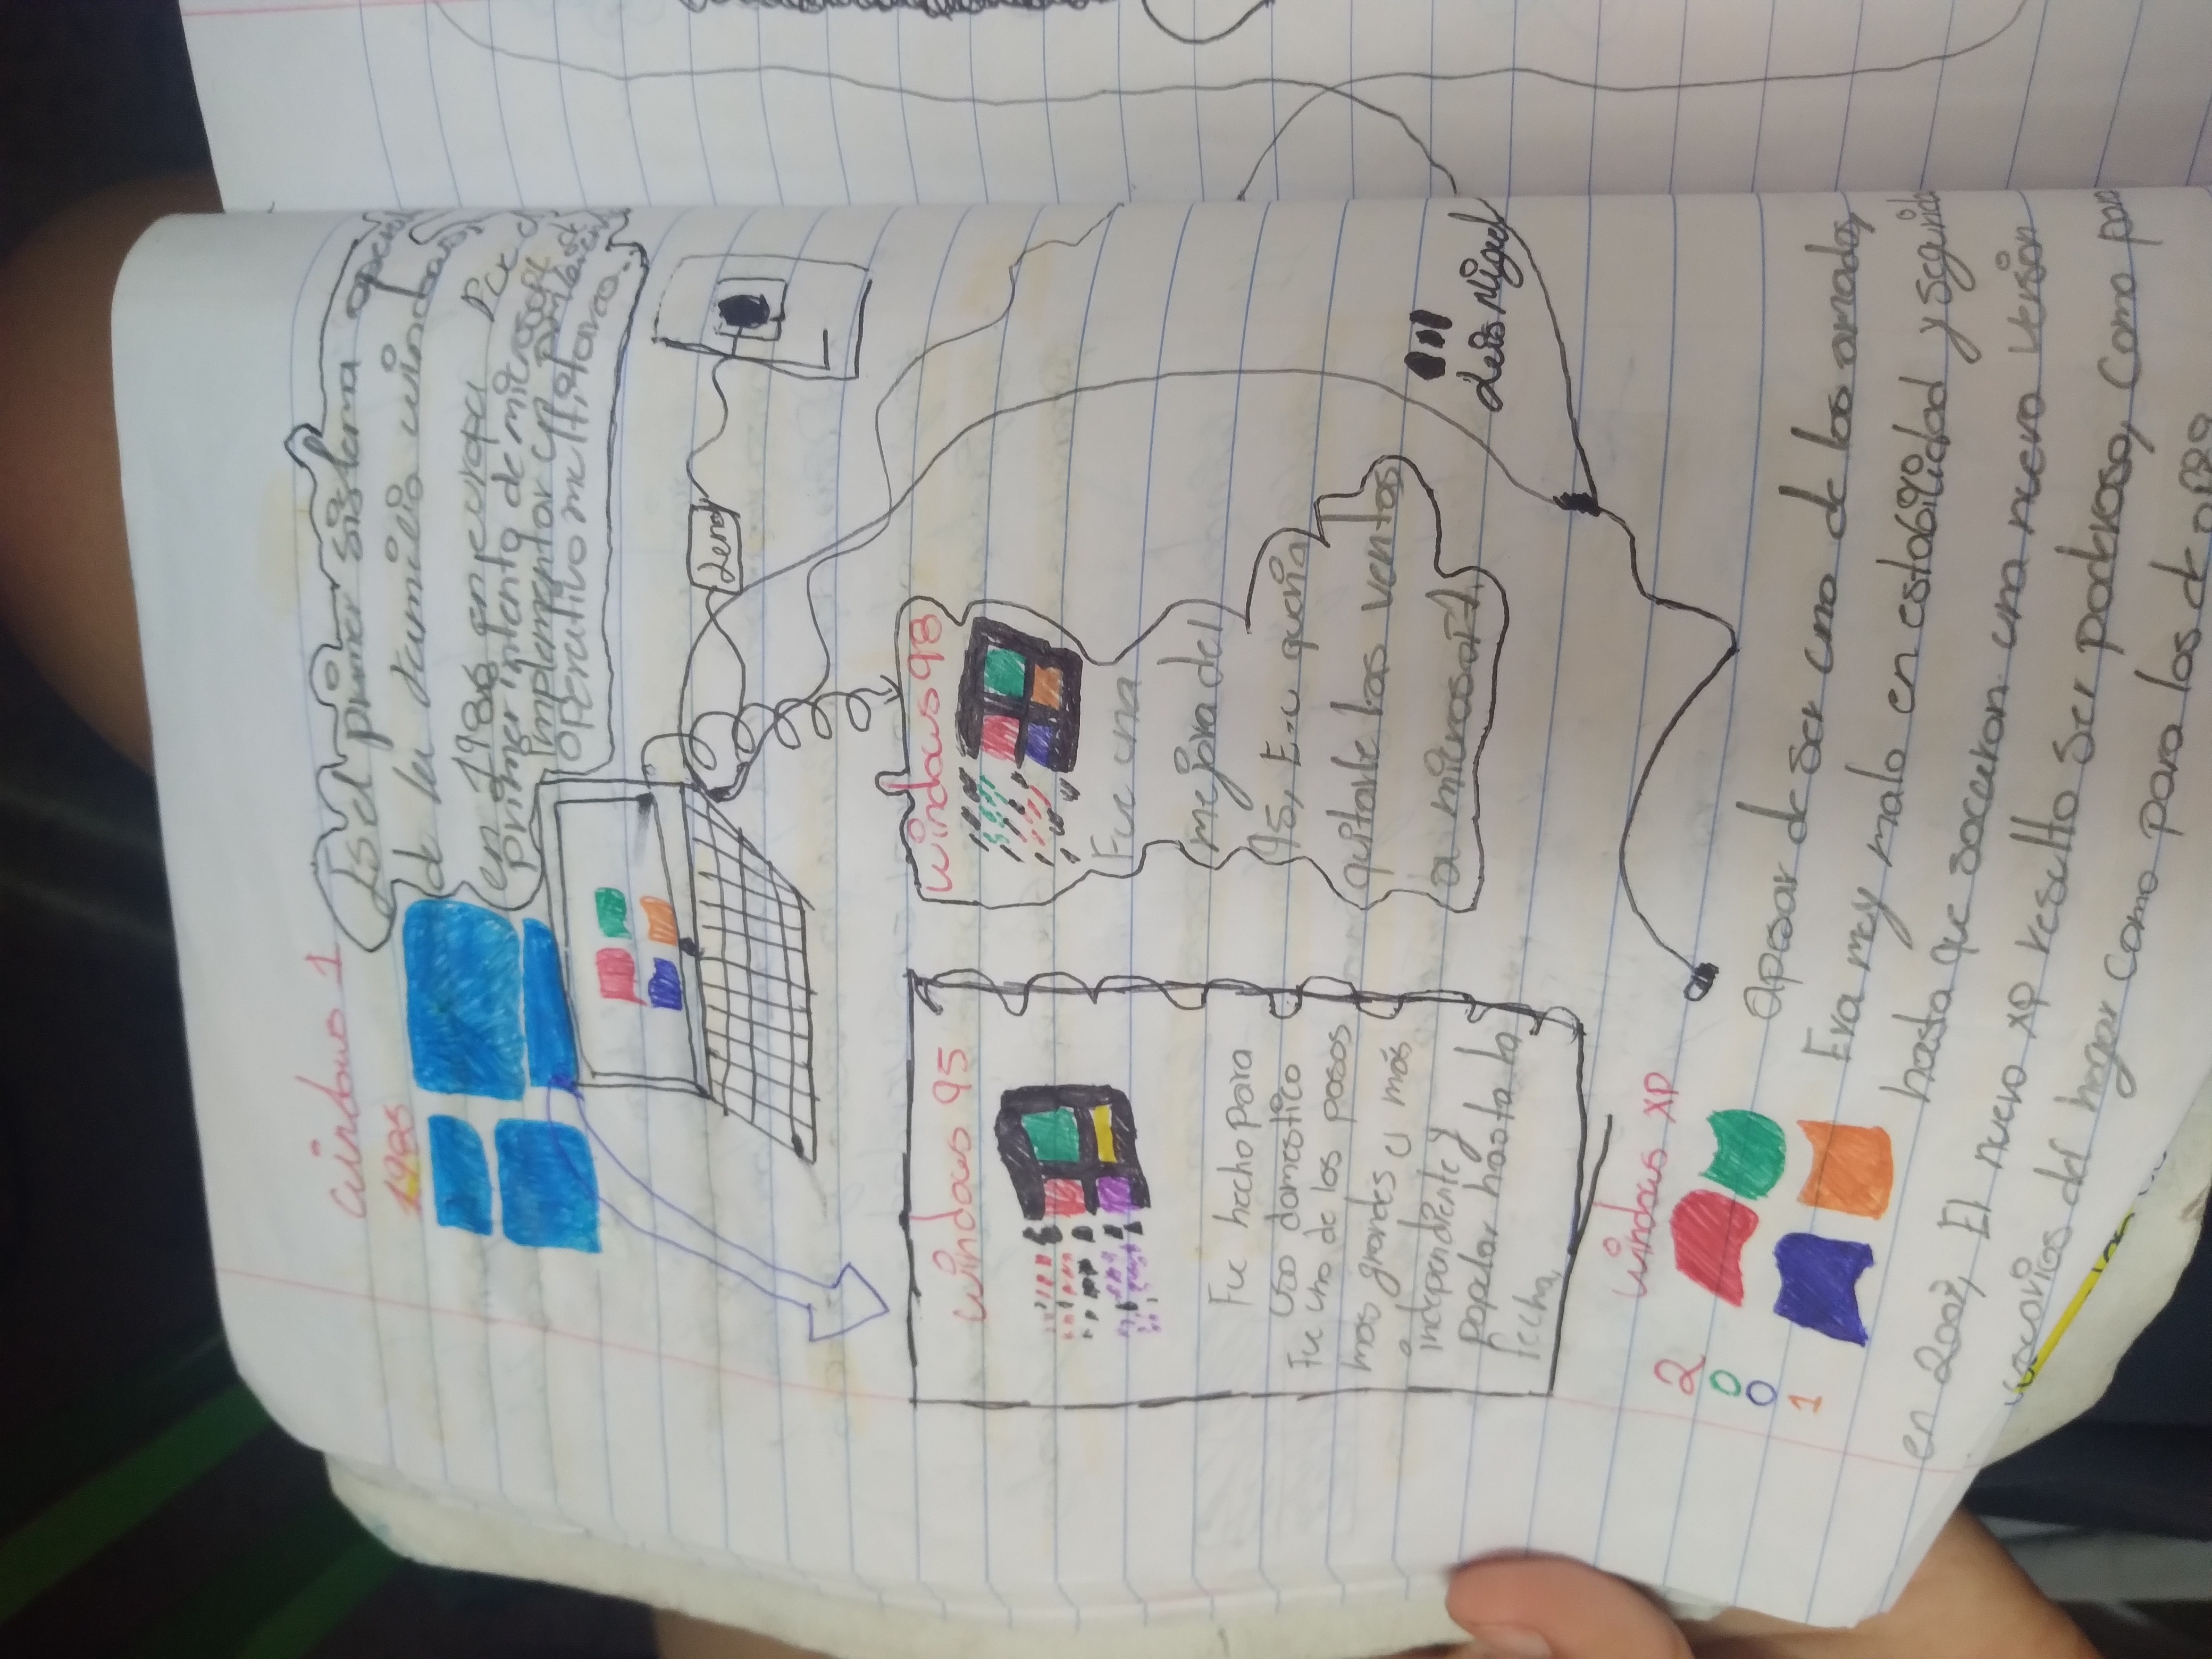 Windows 1
1985
Es el primer sistema opera
de la familia windows
en 1985 en europa Fue el
primer intento de microsoft
implementar un
operativo multitarea.
Windows 95
Fue hecho para
Uso domastico
Fue uno de los pasos
mas grandes y más
independiente y
popular hasta la
fecha,
Windows 98
Fue una
mejora del
95, queria
quitarle las ventas
a microsoft
Luis Miguel
Windows XP
2
0
0
1
Apesar de ser uno de los amados,
Era muy malo en estabilidad y seguida
hasta que sacaron una nueva version
en 2002, El nuevo XP resulto ser poderoso, Como para
usuarios del hogar como para los de